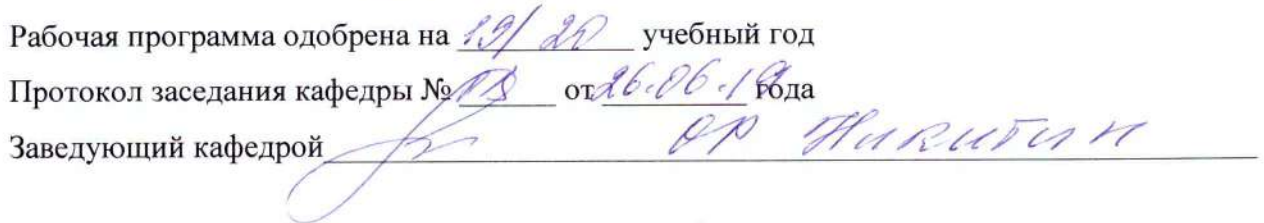 Рабочая программа одобрена на 19/20 учебный год
Протокол заседания кафедры № от 26.06.19 года
Заведующий кафедрой ОР Никитин